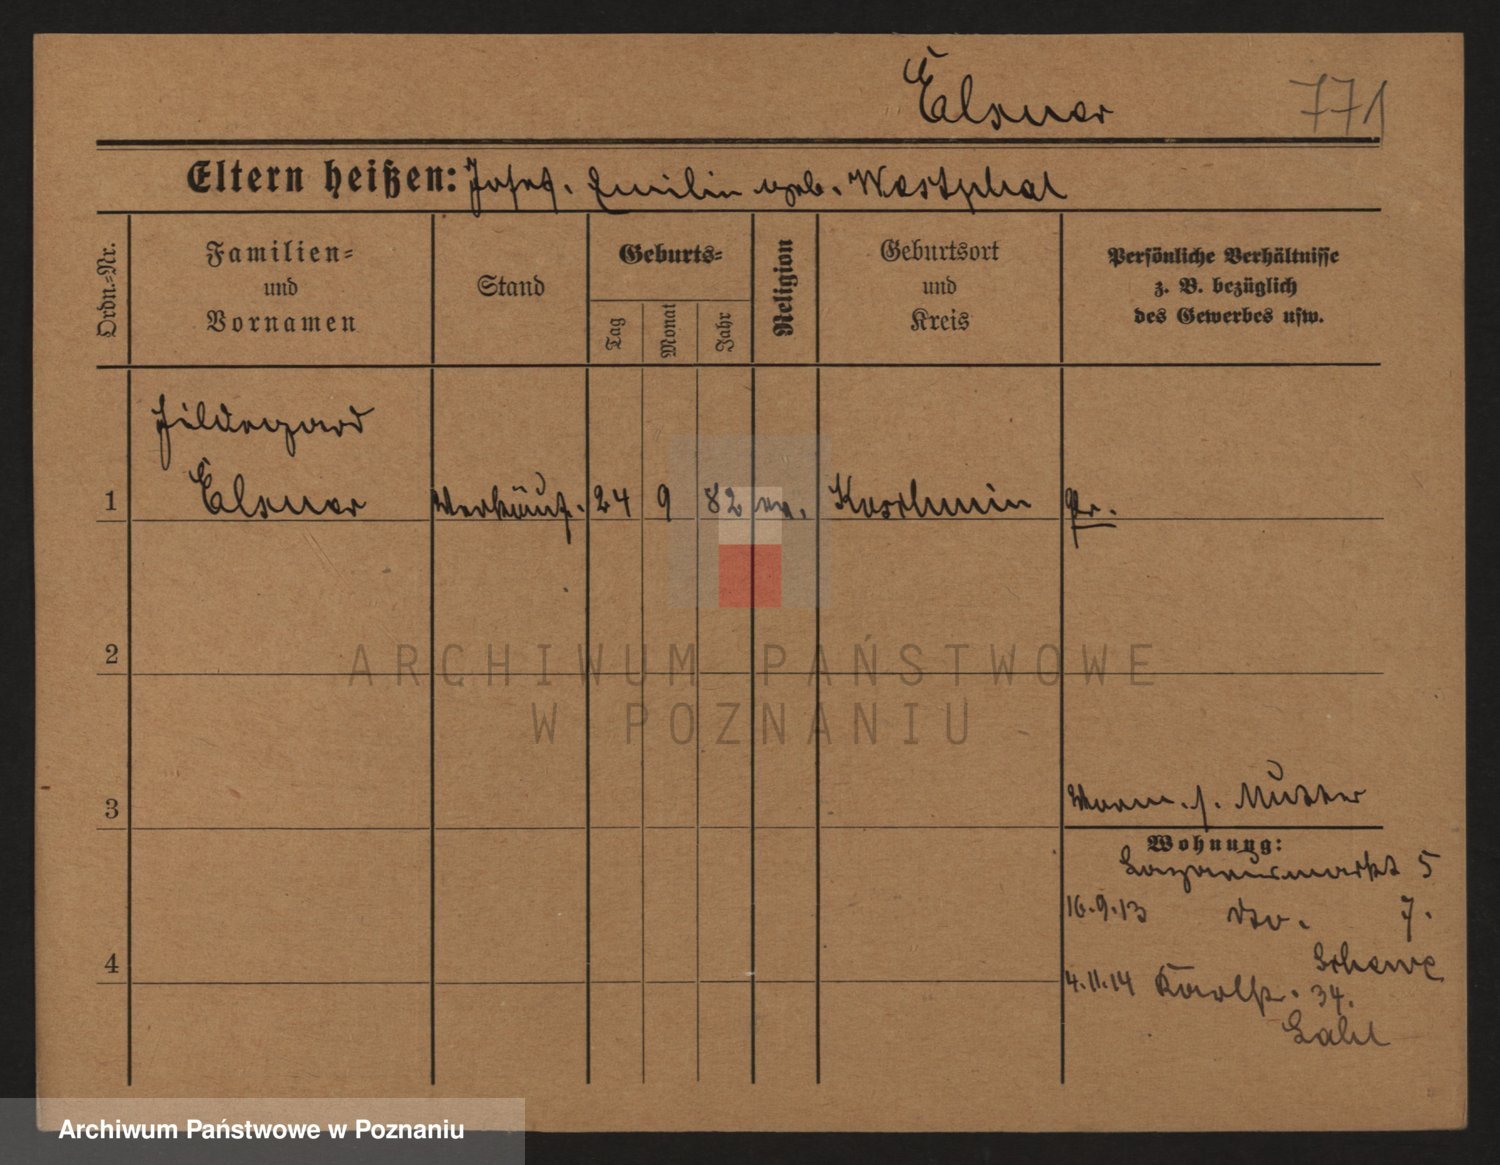 Elsner 771
Eltern heißen: Josef. Emilie geb. Westphal
Ordn.-Nr.
Familien-
und
Vornamen
Stand
Geburts-
Tag
Monat
Jahr
Religion
Geburtsort
und
Kreis
Persönliche Verhältnisse
z. B. bezüglich
des Gewerbes usw.
Hildegard
1 Elsner Verkäuf. 24 9 82 ev. Koschmin Pr.
2
ARCHIWUM PAŃSTWOWE
W POZNANIU
3 Mutter
Wohnung:
Lazarusmarkt 5
16.9.13 dto. 7.
4
4.11.14 Karlstr. 34.
Archiwum Państwowe w Poznaniu